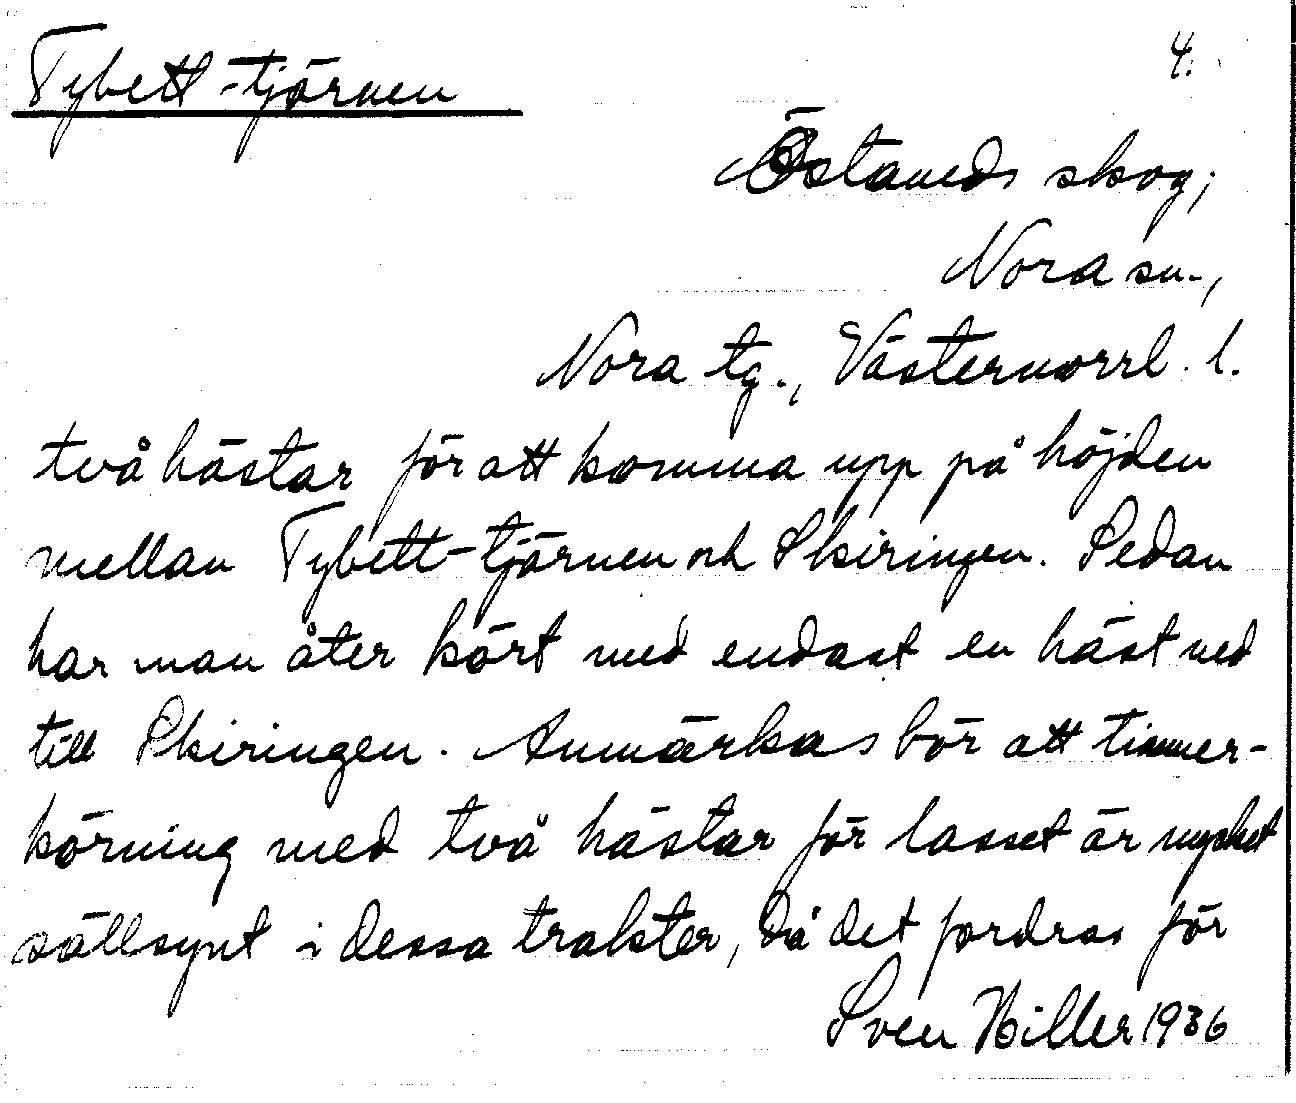 Tybett-tjärnen
4.
Östaneds skog;
Nora sn.,
Nora tg., Västernorrl. l.
två hästar för att komma upp på höjden
mellan Tybett-tjärnen och Skiringen. Sedan
har man åter kört med endast en häst ned
till Skiringen. Anmärkas bör att timmer-
körning med två hästar för lasset är mycket
sällsynt i dessa trakter, då det fordras för
Sven Hiller 1936